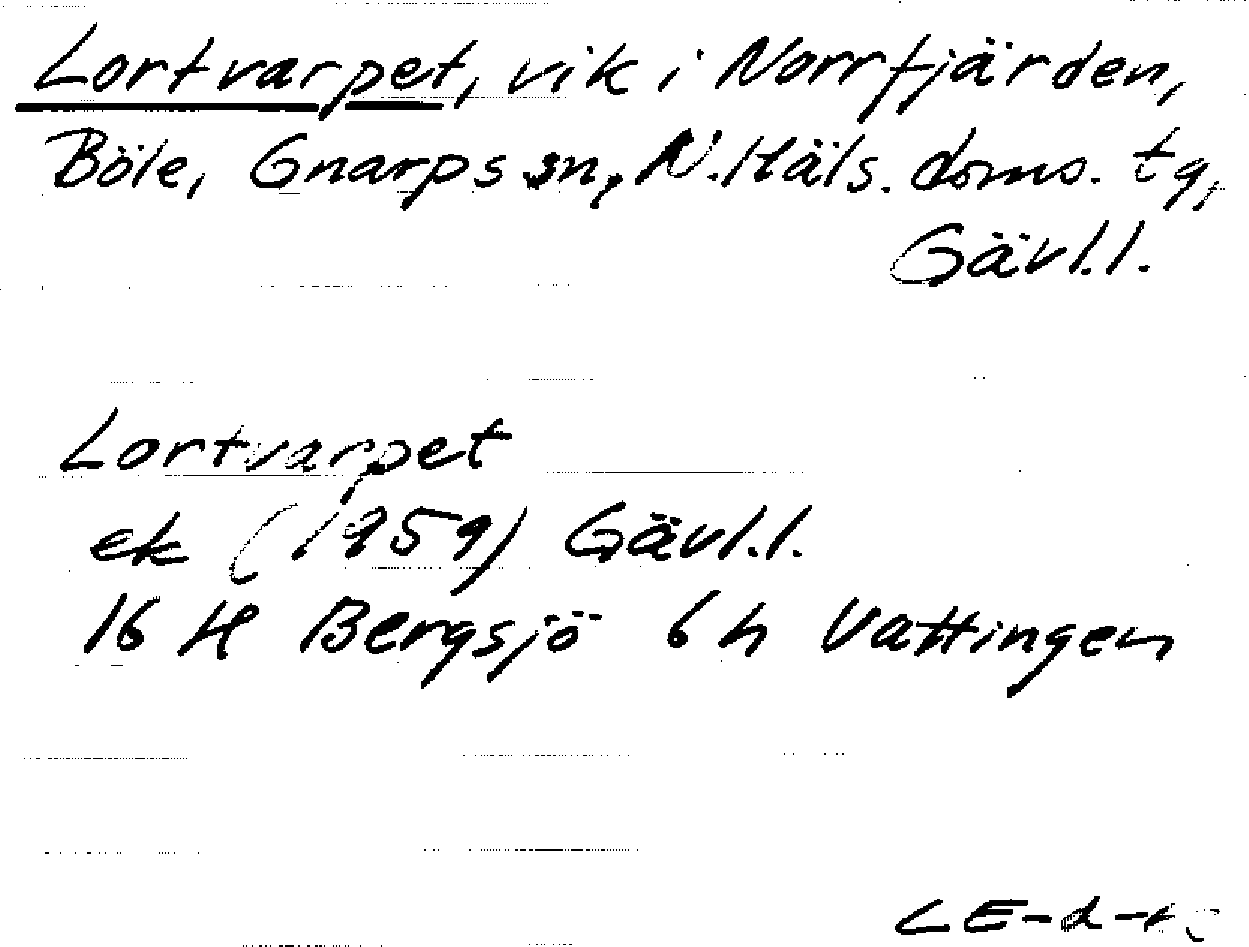 Lortvarpet, vik i Norrfjärden,
Böle, Gnarps sn, N. Häls. doms. tg,
Gävl.l.
Lortvarpet
ek (1959) Gävl.l.
16 H Bergsjö 6 h Vattingen